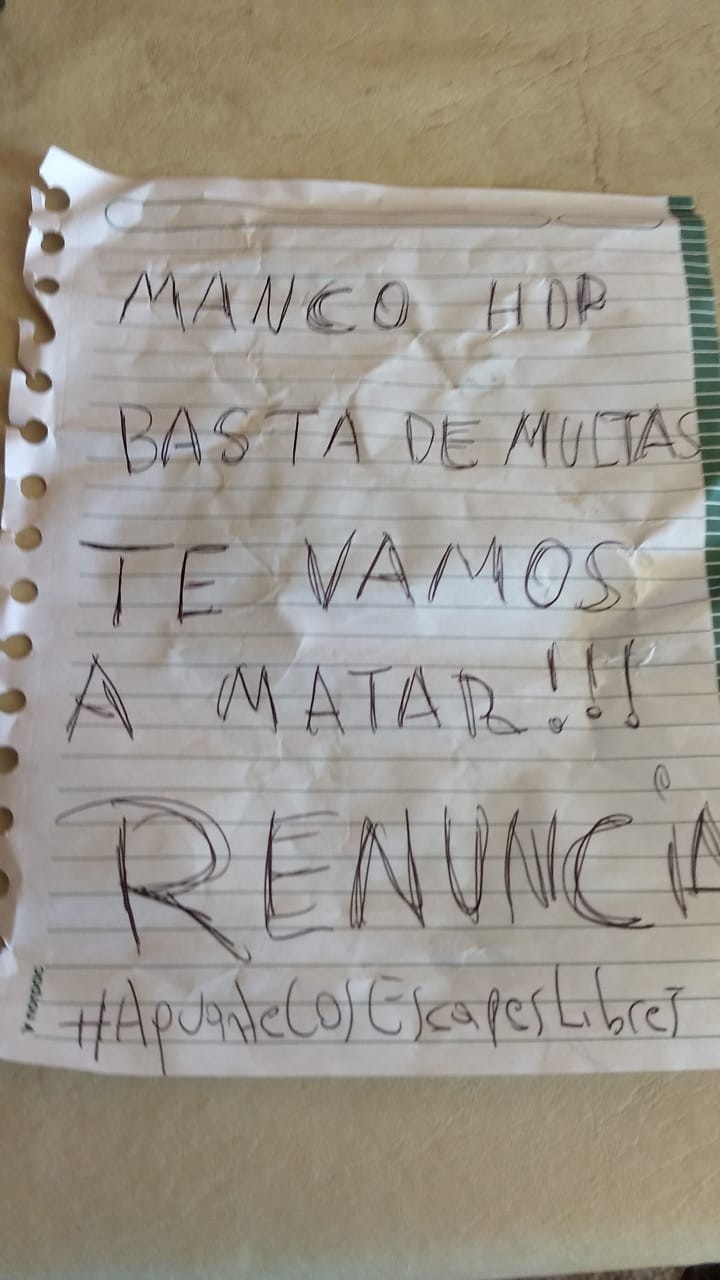 MANCO HDP
BASTA DE MULTAS
TE VAMOS
A MATAR!!!
RENUNCIA
#AguanteLosEscapesLibres